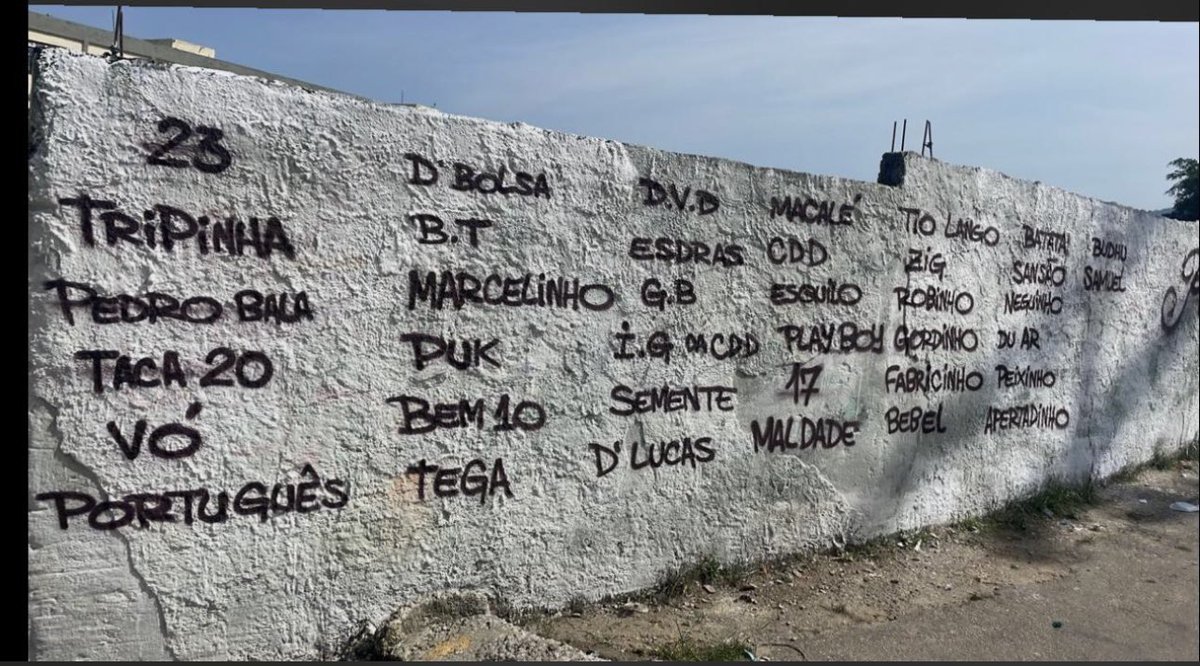 23
TRIPINHA
PEDRO BALA
TACA 20
VÓ
PORTUGUÊS
D'BOLSA
B.T
MARCELINHO
DUK
BEM 10
TEGA
D.V.D
ESDRAS
G.B
I.G DA CDD
SEMENTE
D'LUCAS
MACALÉ
CDD
ESQUILO
PLAY.BOY
17
MALDADE
TIO LANGO
ZIG
ROBINHO
GORDINHO
FABRICINHO
BEBEL
BATATA
SANSÃO
NEGUINHO
DU AR
PEIXINHO
APERTADINHO
BUDHU
SAMUEL